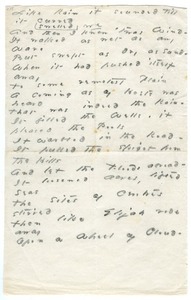 Like Rain it sounded till
it curved
And then I knew 'twas Wind -
It walked as wet as any
Wave
But swept as dry as sand -
When it had pushed itself
away
To some remotest Plain
A coming as of Hosts was
heard
That was indeed the Rain -
It filled the Wells, it
pleased the Pools
It warbled in the Road -
It pulled the spigot from
the Hills
And let the Floods abroad -
It loosened acres, lifted
seas
The sites of Centres
stirred
Then like Elijah rode
away
Upon a Wheel of Cloud -